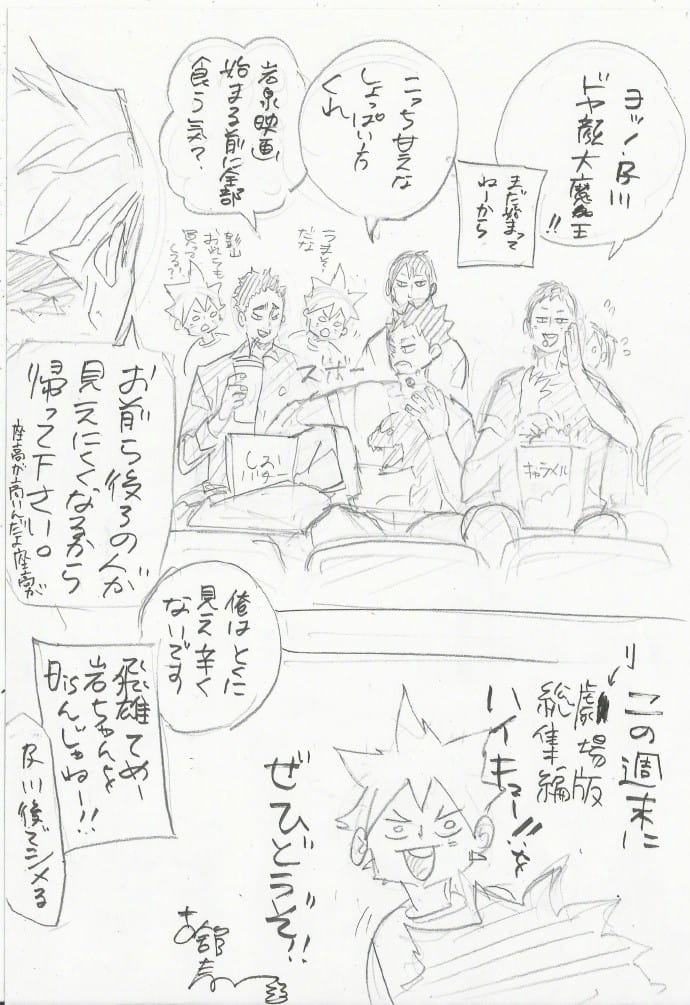 ヨッ！及川
ドヤ顔大魔王!!
まだ始まって
ねーから
こっち甘えな
しょっぱい方
くれ
岩泉映画
始まる前に全部
食う気？
うまそー
だな
影山
おれらも
買って
くる？
ズボー
キャラメル
お前ら後ろの人が
見えにくくなるから
帰って下さい。
座高が高いんだよ座高が
俺はとくに
見え辛く
ないです
飛雄てめー
岩ちゃんを
ねーんじゃねー!!
及川後でシメる
この週末に
劇場版
総集編
ハイキュー!!を
ぜひどうぞ!!
古舘春一